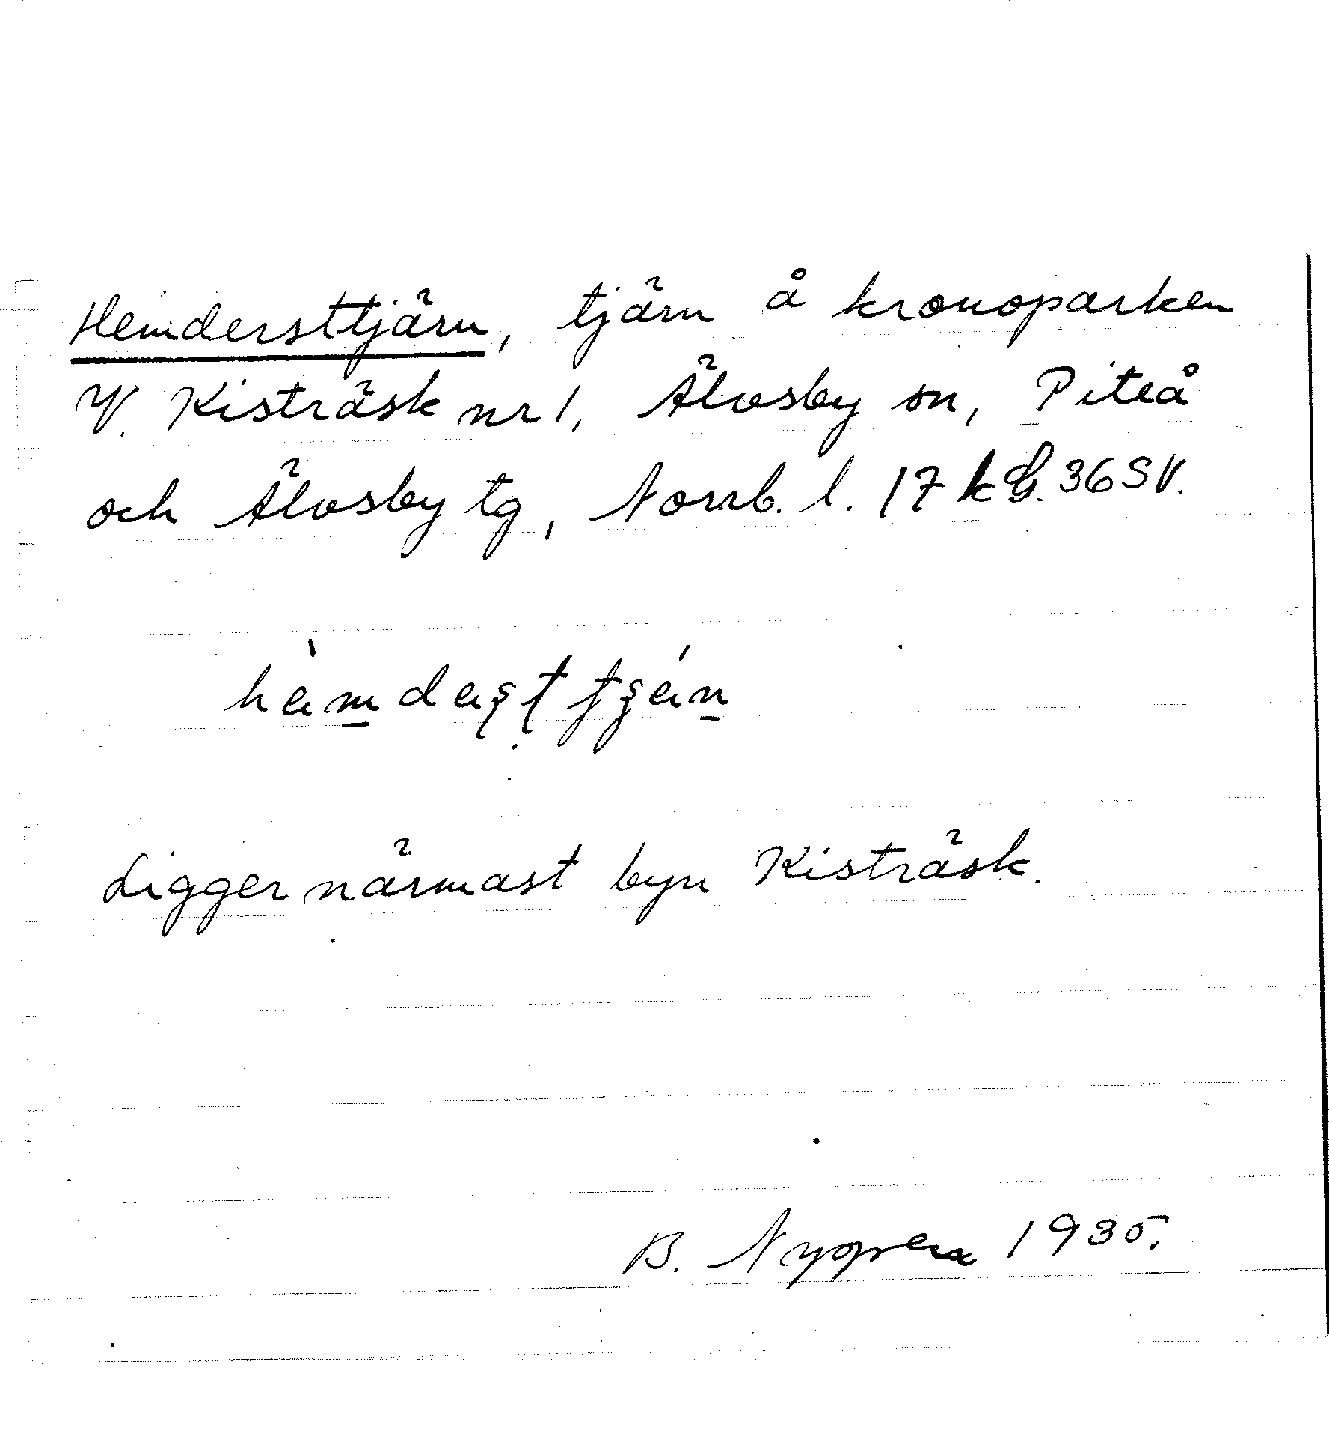 Hemdersttjärn, tjärn å kronoparken
V. Kisträsk nr 1, Älvsby sn, Piteå
och Älvsby tg, Norrb. l. 17 k 36 SV.
Ligger närmast byn Kisträsk.
B. Nygren 1935.